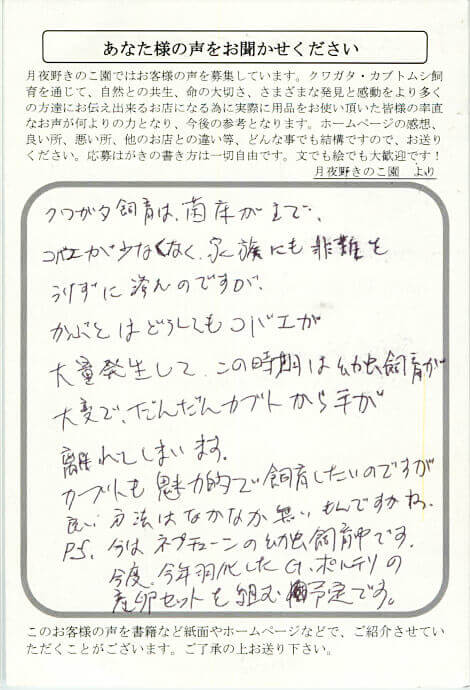 あなた様の声をお聞かせください
月夜野きのこ園ではお客様の声を募集しています。クワガタ・カブトムシ飼
育を通じて、自然との共生、命の大切さ、さまざまな発見と感動をより多く
の方達にお伝え出来るお店になる為に実際に用品をお使い頂いた皆様の率直
なお声が何よりの力となり、今後の参考となります。ホームページの感想、
良い所、悪い所、他のお店との違い等、どんな事でも結構ですので、お送り
ください。応募はがきの書き方は一切自由です。文でも絵でも大歓迎です！
月夜野きのこ園　より
クワガタ飼育は、菌床がまで、
コバエが少なくなく、家族にも非難を
うけずに済んのですが、
かぶとはどうしてもコバエが
大量発生して、この時期は幼虫飼育が
大変で、だんだんカブトから手が
離れてしまいます。
カブトも魅力的で飼育したいのですが
良い方法はなかなか無いもんですかね。
P.S. 今はネプチューンの幼虫飼育中です。
今度、今年羽化したG.ポルテリの
産卵セットを組む予定です。
このお客様の声を書籍など紙面やホームページなどで、ご紹介させてい
ただくことがございます。ご了承の上お送り下さい。